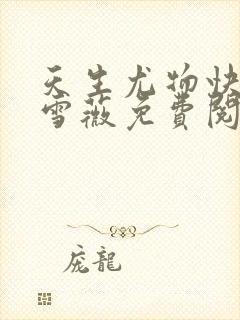 天生尤物快
雪薇免費閱
庞龍